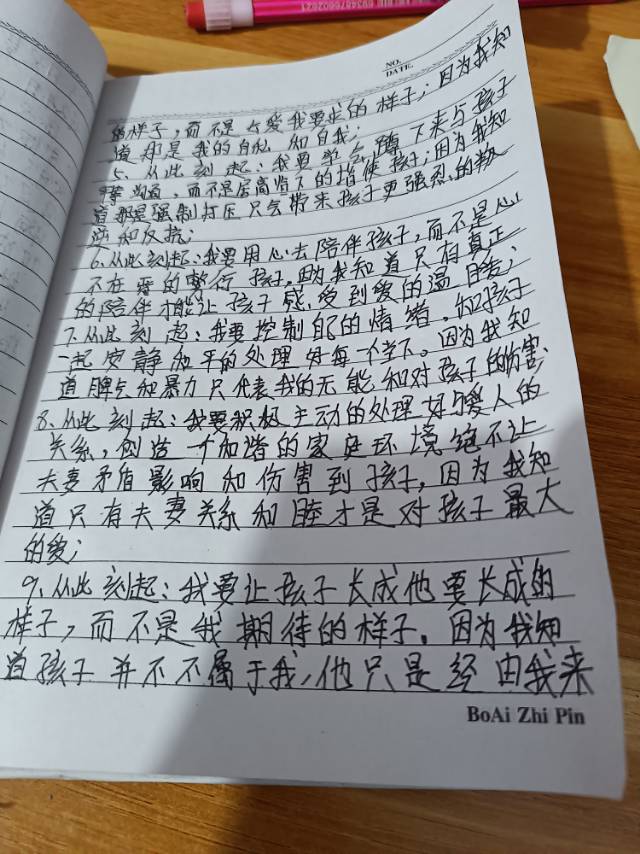 NO.
DATE.
样子,而不是去爱我要求的样子;因为我知
道那是我的自私和自我;
5、从此刻起:我要学会蹲下来与孩子
平等沟通,而不是居高临下的指使孩子;因为我知
道那是强制打压只会带来孩子更强烈的叛
逆和反抗;
6、从此刻起:我要用心去陪伴孩子,而不是心
不在焉的敷衍孩子,因为我知道只有真正
的陪伴才能让孩子感受到爱的温暖;
7、从此刻起:我要控制自己的情绪,和孩子
一起安静和平的处理好每一个当下。因为我知
道脾气和暴力只代表我的无能和对孩子的伤害;
8、从此刻起:我要积极主动的处理好与爱人的
关系,创造一个和谐的家庭环境绝不让
夫妻矛盾影响和伤害到孩子,因为我知
道只有夫妻关系和睦才是对孩子最大
的爱;
9、从此刻起:我要让孩子长成他要长成的
样子,而不是我期待的样子。因为我知
道孩子并不不属于我,他只是经由我来
BoAi Zhi Pin